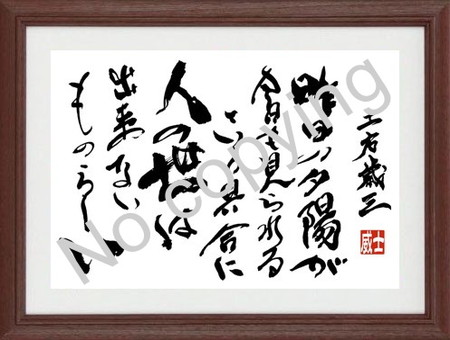 土方歳三
昨日の夕陽が
今日も見られる
という具合に
人の世は
出来ない
ものらしい
士威
No copying